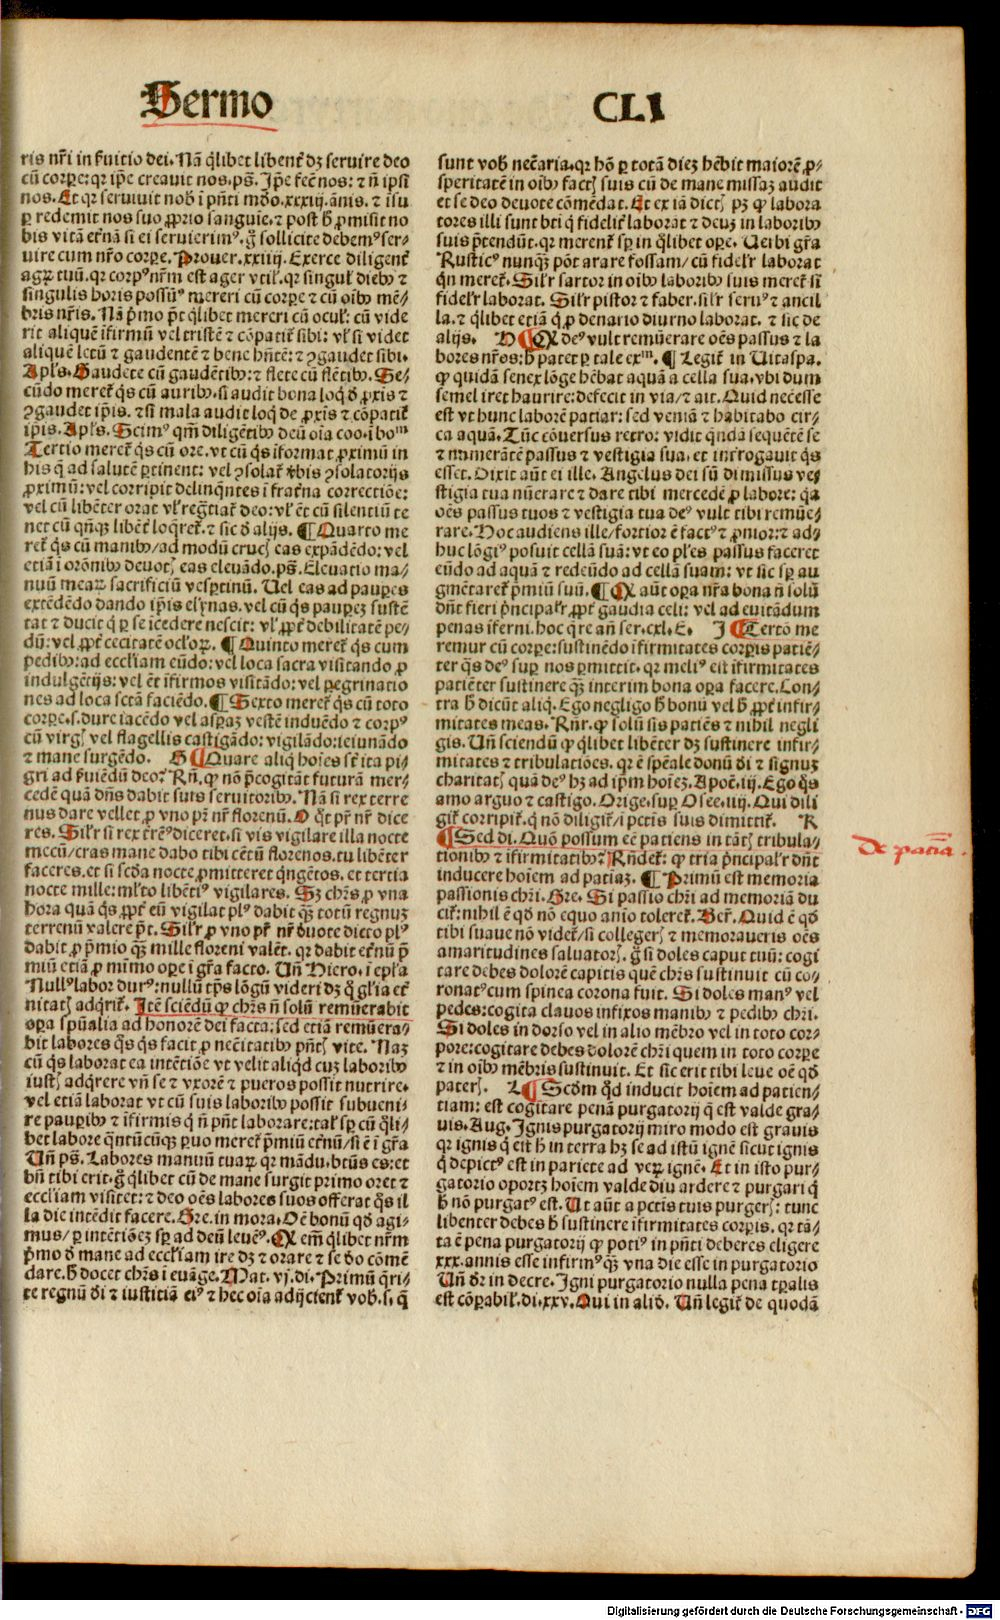 Sermo CLI
ris nr̄i in ẜuitio dei. Nā q̄libet libenť dʒ seruire deo
cū corꝑe: qꝛ ip̄e creauit nos. ps̄. Ip̄e fec̄ nos: ⁊ n̄ ipsi
nos. Et qꝛ seruiuit nob̄ i p̄nti mūdo .xxxiij. ānis. ⁊ isu
ꝑ redemit nos suo ꝓprio sanguīe. ⁊ post h̄ ꝓmisit no
bis vitā et̄nā si ei seruierimꝰ. g̊ sollicite debemꝰ ser⸗
uire cum nr̄o corꝑe. Prouer. xxiiij. Exerce diligenť
agꝝ tuū. qꝛ corpꝰ nr̄m est ager vtił. qꝛ singuł diebꝰ ⁊
singulis horis possūꝰ mereri cū corꝑe ⁊ cū oībꝰ mē⸗
bris nr̄is. Nā p̄mo p̄t q̄libet mereri cū ocuł: cū vide
rit aliquē ifirmū vel tristē ⁊ cōpatiť sibi: vł si videt
aliquē letū ⁊ gaudentē ⁊ bene hn̄tē: ⁊ ꝯgaudet sibi.
Apłs. Gaudete cū gaudētibꝰ: ⁊ flete cū flētibꝰ. Se⸗
cūdo mereť q̄s cū auribꝰ. si audit bona loq̄ d̄ ꝓxīs ⁊
ꝯgaudet ip̄is. ⁊ si mala audit loq̄ de ꝓxīs ⁊ cōpatiť
ip̄is. Apłs. Scimꝰ qm̄ diligētibꝰ deū oīa coo. i boᵐ
Tertio mereť q̄s cū ore. vt cū q̄s iformat ꝓximū in
his q̄ ad salutē ꝑtinent: vel ꝯsolať v̄bis ꝯsolatorijs
ꝓximū: vel corripit delinq̄ntes i frat̄na correctiōe:
vel cū libēter orat vł reḡtiať deo: vł ēt cū silentiū te
net cū qn̄qʒ libēť loq̄reť. ⁊ sic d̄ alijs. ¶ Quarto me
reť q̄s cū manibꝰ / ad modū crucꝭ eas expādēdo: vel
etiā i orōnibꝰ deuotꝭ eas eleuādo. ps̄. Eleuatio ma⸗
nuū meaꝝ sacrificiū vesꝑtinū. Uel eas ad pauꝑes
extēdēdo dando ip̄is elynas. vel cū q̄s pauꝑeʒ sustē
tat ⁊ ducit q̄ ꝑ se icedere nescit: vł ꝓpť debilitatē pe⸗
dū: vel ꝓpť cecitatē ocłoꝝ. ¶ Quinto mereť q̄s cum
pedibꝰ: ad eccłiam eūdo: vel loca sacra visitando ꝓ
indulgētijs: vel ēt ifirmos visitādo: vel ꝑegrinatio
nes ad loca sctā faciēdo. ¶ Sexto mereť q̄s cū toto
corꝑe. s. dure iacēdo vel asꝑaʒ vestē induēdo ⁊ corpꝰ
cū virgꝭ vel flagellis castigādo: vigilādo: ieiunādo
⁊ mane surgēdo. G ¶ Quare aliq̄ hoīes sť ita pi⸗
gri ad ẜuiēdū deo? Rn̄. ꝙ nō p̄cogitāt futurā mer⸗
cedē quā dn̄s dabit suis seruitoribꝰ. Nā si rex terre
nus dare vellet ꝓ vno pr̄ nr̄ florenū. O q̄t pr̄ nr̄ dice
res. Siłr si rex t̄rēꝰ diceret. si vis vigilare illa nocte
mecū / cras mane dabo tibi cētū florenos. tu libēter
faceres. et si scd̄a nocte ꝓmitteret q̄ngētos. et tertia
nocte mille: młto libētiꝰ vigilares. Sʒ chr̄s ꝓ vna
hora quā q̄s ꝓpť eū vigilat plꝰ dabit qʒ̄ totū regnuʒ
terrenū valere p̄t. Siłr ꝓ vno pr̄ nr̄ deuote dicto plꝰ
dabit ꝓ p̄mio qʒ̄ mille floreni valēt. qꝛ dabit et̄nū p̄
miū etiā ꝓ mīmo oꝑe i gr̄a facto. Un̄ Hiero. i epła
Nullꝰ labor durꝰ: nullū tp̄s lōgū videri dʒ q̊ głia et̄
nitatꝭ adq̄riť. Itē sciēdū ꝙ chr̄s n̄ solū remūerabit
oꝑa spūalia ad honorē dei facta: sed etiā remūera⸗
bit labores q̄s q̄s facit ꝓ nēcitatibꝰ p̄ntꝭ vite. Naʒ
cū q̄s laborat ea intētiōe vt velit aliq̄d cuʒ laboribꝰ
iustꝭ adq̄rere vn̄ se ⁊ vxorē ⁊ pueros possit nutrire.
vel etiā laborat vt cū suis laboribꝰ possit subueni⸗
re pauꝑibꝰ ⁊ ifirmis q̄ n̄ pn̄t laborare: tał sꝑ cū q̄li⸗
bet labore q̄ntūcūqʒ ꝑuo mereť p̄miū et̄nū / si ē i gr̄a
Un̄ ps̄. Labores manuū tuaꝝ qꝛ mādu. btūs es: et
bn̄ tibi erit. g̊ q̄libet cū de mane surgit primo oret ⁊
eccłiam visitet: ⁊ deo oēs labores suos offerat q̄s il
la die intēdit facere. Gre. in mora. Oē bonū qd̄ agi⸗
mus / ꝑ intētiōeʒ sꝑ ad deū leuēꝰ. Qꝛ em̄ q̄libet nr̄m
p̄mo d̄ mane ad eccłiam ire dʒ ⁊ orare ⁊ se d̄o cōmē
dare. h̄ docet chr̄s i euāge. Mat. vj. di. Primū q̄ri⸗
te regnū d̄i ⁊ iustitiā eiꝰ ⁊ hec oīa adijcienť vob̄. s. q̄
sunt vob̄ nec̄aria. qꝛ hō ꝑ totā dieʒ hēbit maiorē ꝓ⸗
speritatē in oībꝰ factꝭ suis cū de mane missaʒ audit
et se deo deuote cōmēdat. Et ex iā dictꝭ pʒ ꝙ labora
tores illi sunt bti q̄ fideliť laborāt ⁊ deuʒ in laboribꝰ
suis p̄tendūt. qꝛ merenť sꝑ in q̄libet oꝑe. Uerbi gr̄a
Rusticꝰ nunqʒ̄ pōt arare fossam / cū fidełr laborat
q̄n mereť. Siłr sartor in oībꝰ laboribꝰ suis mereť si
fidełr laborat. Siłr pistor ⁊ faber. siłr seruꝰ ⁊ ancil
la. ⁊ q̄libet etiā q̄ ꝓ denario diurno laborat. ⁊ sic de
alijs. H ¶ Qꝛ deꝰ vult remūerare oēs passus ⁊ la
bores nr̄os: h̄ patet ꝑ tale exᵐ. ¶ Legiť in Uitaspa.
ꝙ quidā senex lōge hēbat aquā a cella sua. vbi dum
semel iret haurire: defecit in via / ⁊ ait. Quid necesse
est vt hunc laborē patiar: sed veniā ⁊ habitabo cir⸗
ca aquā. Tūc cōuersus retro: vidit quēdā sequētē se
⁊ numerātē passus ⁊ vestigia sua. et int̄rogauit q̄s
esset. Dixit aūt ei ille. Angelus dei sū dimissus ve⸗
stigia tua nūerare ⁊ dare tibi mercedē ꝓ labore: q̄a
oēs passus tuos ⁊ vestigia tua deꝰ vult tibi remūe⸗
rare. Hoc audiens ille / fortior ē factꝰ ⁊ ꝓnior: ⁊ ad⸗
huc lōgiꝰ posuit cellā suā: vt eo płes passus faceret
eūdo ad aquā ⁊ redeūdo ad cellā suam: vt sic sꝑ au
gmētareť p̄miū suū. ¶ Qꝛ aūt oꝑa nr̄a bona n̄ solū
dn̄t fieri p̄ncipałr ꝓpť gaudia celi: vel ad euitādum
penas iferni. hoc q̄re an̄ ser. cxl. E. I ¶ Tertō me
remur cū corꝑe: sustinēdo ifirmitates corꝑis patiē⸗
ter q̄s deꝰ suꝑ nos ꝑmittit. qꝛ meliꝰ est ifirmitates
patiēter sustinere qʒ̄ interim bona oꝑa facere. Con⸗
tra h̄ dicūt aliq̄. Ego negligo h̄ bonū vel h̄ ꝓpť infir⸗
mitates meas. Rn̄r. ꝙ solū sis patiēs ⁊ nihil negli
gis. Un̄ sciendū ꝙ q̄libet libēter dʒ sustinere infir⸗
mitates ⁊ tribulatiōes. qꝛ ē spēale donū d̄i ⁊ signuʒ
charitatꝭ quā deꝰ hʒ ad ip̄m hoīeʒ. Apoc̄. iij. Ego q̄s
amo arguo ⁊ castigo. Orige. suꝑ Osee. iiij. Qui dili
giť corripiť. q̄ nō diligiť / i pctīs suis dimittiť. K
¶ Sed di. Quō possum eē patiens in tātꝭ tribula⸗
tionibꝰ ⁊ ifirmitatibꝰ? Rn̄deť: ꝙ tria p̄ncipałr dn̄t
inducere hoīem ad patiaʒ. ¶ Primū est memoria
passionis chr̄i. Gre. Si passio chr̄i ad memoriā du
ciť: nihil ē qd̄ nō equo anīo tolereť. Ber̄. Quid ē qd̄
tibi suaue nō videť / si collegerꝭ ⁊ memoraueris oēs
amaritudines saluatorꝭ. g̊ si doles caput tuū: cogi
tare debes dolorē capitis quē chr̄s sustinuit cū co⸗
ronatꝰ cum spinea corona fuit. Si doles manꝰ vel
pedes: cogita clauos infixos manibꝰ ⁊ pedibꝰ chr̄i.
Si doles in dorso vel in alio mēbro vel in toto cor⸗
pore: cogitare debes dolorē chr̄i quem in toto corꝑe
⁊ in oībꝰ mēbris sustinuit. Et sic erit tibi leue oē qd̄
paterꝭ. L ¶ Scd̄m qd̄ inducit hoīem ad patien⸗
tiam: est cogitare penā purgatorij q̄ est valde gra⸗
uis. Aug. Ignis purgatorij miro modo est grauis
qꝛ ignis q̄ erit h̄ in terra hʒ se ad istū ignē sicut ignis
q̄ depictꝰ est in pariete ad veꝝ ignē. Et in isto pur⸗
gatorio oportʒ hoīem valde diu ardere ⁊ purgari q̄
h̄ nō purgatꝰ est. Ut aūt a pctīs tuis purgerꝭ: tunc
libenter debes h̄ sustinere ifirmitates corꝑis. qꝛ tā⸗
ta ē pena purgatorij ꝙ potiꝰ in p̄nti deberes eligere
xxx. annis esse infirmꝰ qʒ̄ vna die esse in purgatorio
Un̄ dr̄ in decre. Igni purgatorio nulla pena tꝑalis
est cōꝑabił. di. xxv. Qui in aliō. Un̄ legiť de quodā
De patīa.
Digitalisierung gefördert durch die Deutsche Forschungsgemeinschaft - DFG